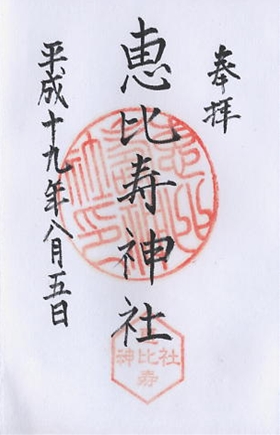 奉拝
恵比寿神社
平成十九年八月五日
神比社
寿